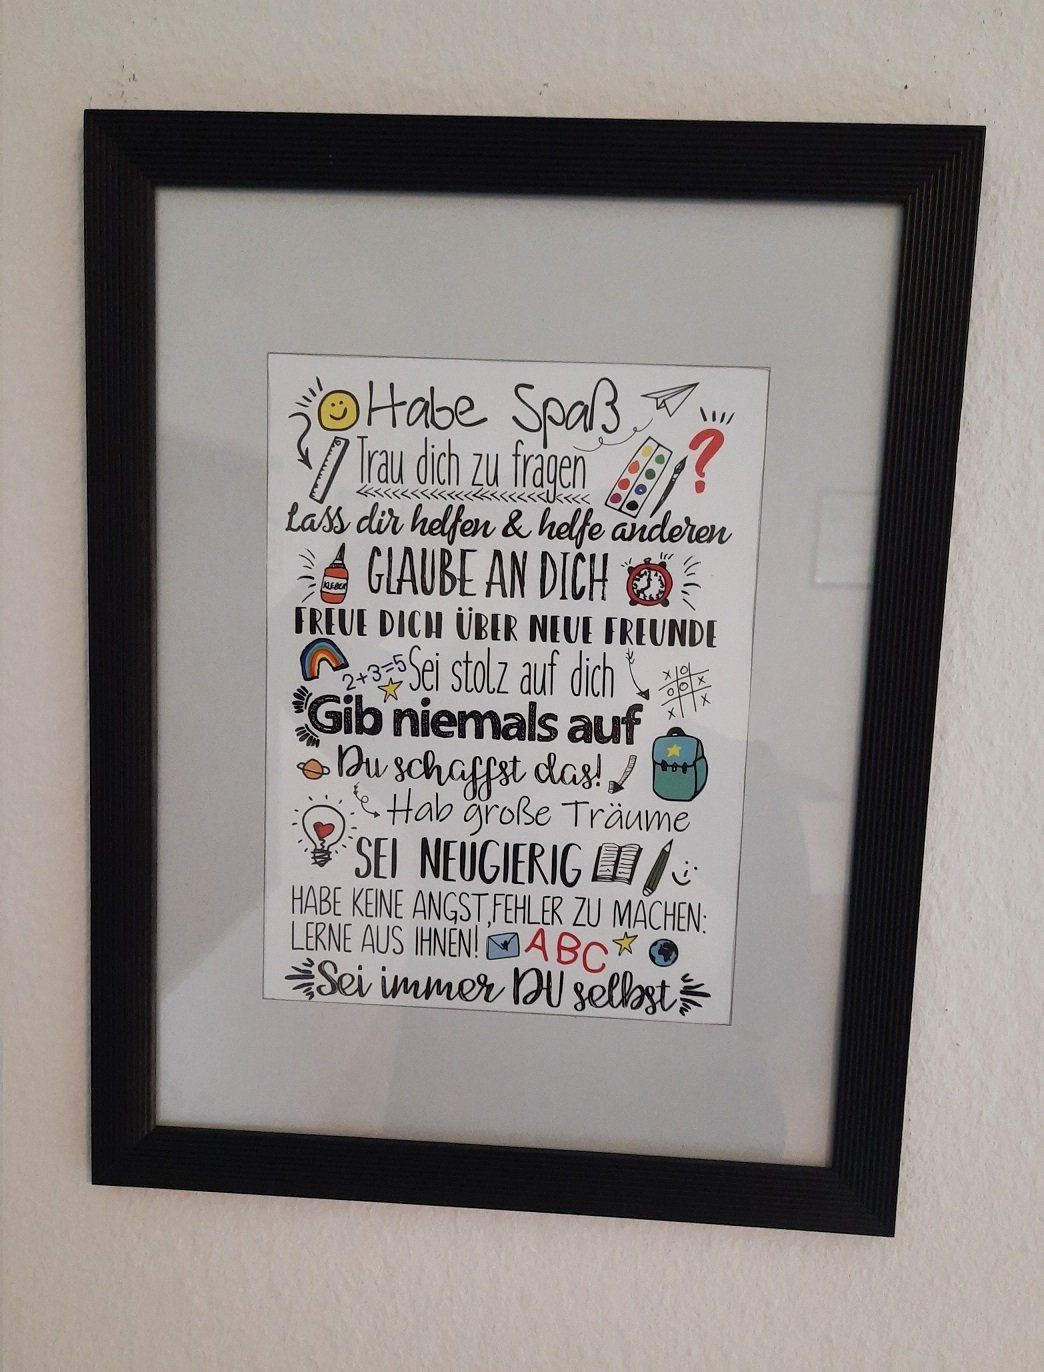 Habe Spaß
Trau dich zu fragen
Lass dir helfen & helfe anderen
KLEBER
GLAUBE AN DICH
FREUE DICH ÜBER NEUE FREUNDE
2+3=5
Sei stolz auf dich
Gib niemals auf
Du schaffst das!
Hab große Träume
SEI NEUGIERIG
HABE KEINE ANGST, FEHLER ZU MACHEN:
LERNE AUS IHNEN!
ABC
Sei immer DU selbst